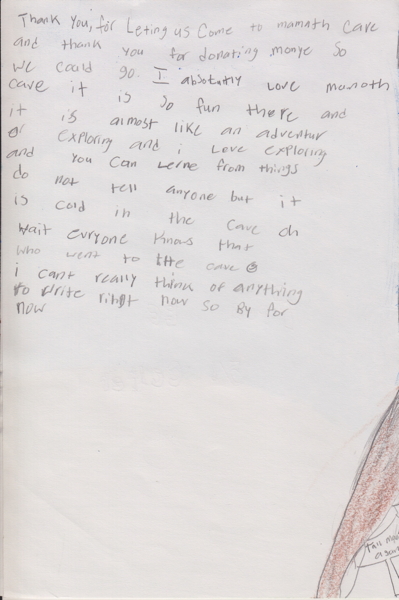 Thank You, for Leting us Come to mamath Cave
and thank you for donating monye So
We could go. I absolutly Love mamoth
Cave it is so fun there and
it is almost like an adventur
or exploring and i Love exploring
and you can lerne from things
do not tell anyone but it
is cold in the cave oh
Wait evryone knows that
who went to the cave
i cant really think of anything
to Write right now So By for
now
This